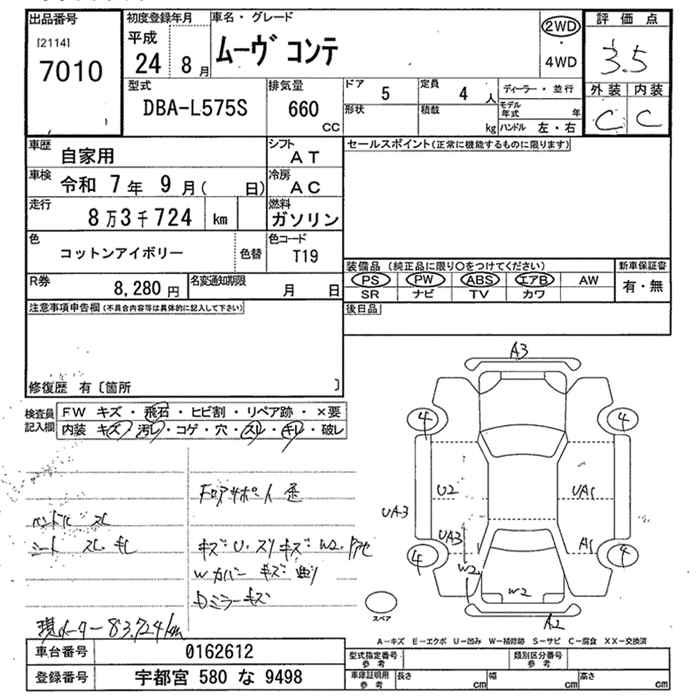 出品番号
[2114]
7010
初度登録年月
平成
24 8月
車名・グレード
ムーヴ コンテ
2WD
・
4WD
評価点
3.5
外装 内装
C C
型式
DBA-L575S
排気量
660
CC
ドア 5
定員 4 人
ディーラー・並行
形状
積載 kg
モデル年式 年
ハンドル 左・右
車歴
自家用
シフト
AT
セールスポイント(正常に機能するものに限ります)
車検
令和 7年 9月( 日)
冷房
AC
走行
8万3千724 km
燃料
ガソリン
色
コットンアイボリー
色替
色コード
T19
装備品 (純正品に限り○をつけてください)
新車保証書
PS PW ABS エアB AW
有・無
SR ナビ TV カワ
R券
8,280円
名変通知期限
月 日
後日品
注意事項申告欄(不具合内容等は具体的に記入して下さい)
修復歴 有〔箇所 〕
検査員
記入欄
FW キズ・飛石・ヒビ割・リペア跡・×要
内装 キズ・汚レ・コゲ・穴・スレ・キレ・破レ
ハンドル スレ
シート スレ キレ
キズ U・スリキズ W2・
Wカバー キズ
ミラーキズ
現メーター 83,724km
A3
4
4
U2
UA1
UA3
UA3
A1
4
4
W2
W2
A2
スペア
A-キズ E-エクボ U-凹み W-補修跡 S-サビ C-腐食 XX-交換済
車台番号
0162612
登録番号
宇都宮 580 な 9498
型式指定番号
参考
類別区分番号
参考
車庫証明用
参考
長さ cm
幅 cm
高さ cm